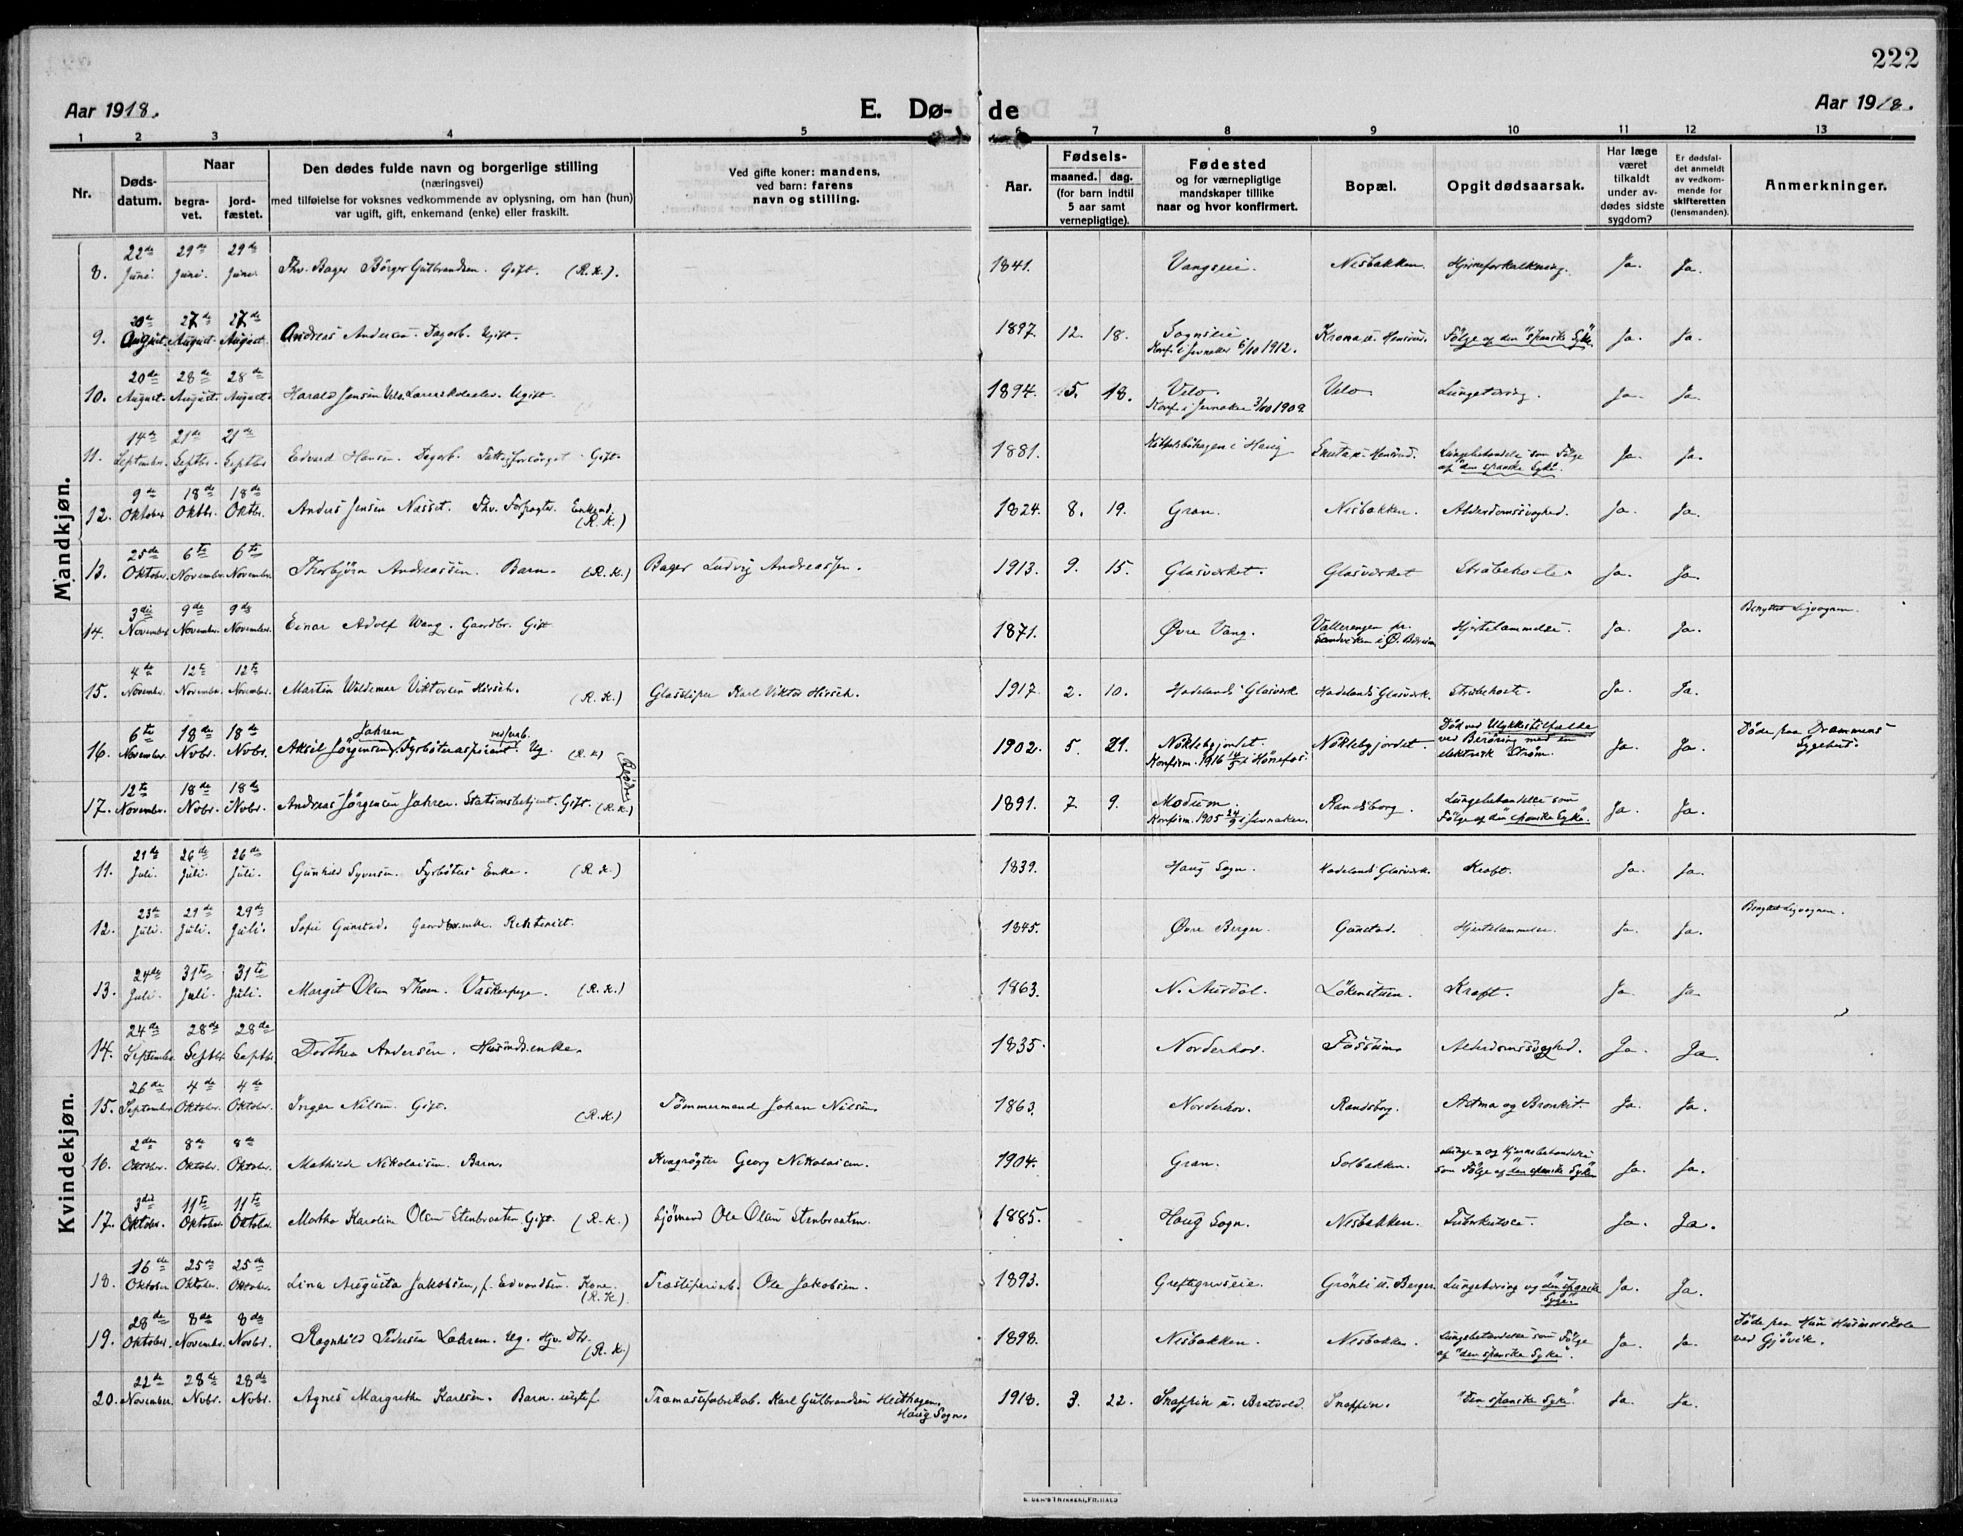 222
Aar 1918.
E. Dø- de
Aar 1918.
1 2 3 4 5 6 7 8 9 10 11 12 13
Nr.
Døds-
datum.
Naar
begra-
vet.
jord-
fæstet.
Den dødes fulde navn og borgerlige stilling
(næringsvei)
med tilføielse for voksnes vedkommende av oplysning, om han (hun)
var ugift, gift, enkemand (enke) eller fraskilt.
Ved gifte koner: mandens,
ved barn: farens
navn og stilling.
Aar.
Fødsels-
maaned. dag.
(for barn indtil
5 aar samt
vernepligtige).
Fødested
og for værnepligtige
mandskaper tillike
naar og hvor konfirmert.
Bopæl.
Opgit dødsaarsak.
Har læge
været
tilkaldt
under av-
dødes sidste
sygdom?
Er dødsfal-
det anmeldt
av vedkom-
mende for
skifteretten
(lensmanden).
Anmerkninger.
Mandkjøn.
22de 29de 29de
8. Juni. Juni. Juni. Fhv. Bager Börger Gulbrandsen. Gift. (R.K.). 1841. Vangseie. Nesbakken. Hjerneforkalkning. Ja. Ja.
20de 27de 27de
9. August. August. August. Andreas Andersen. Dagarb. Ugift. 1897. 12. 18. Sognseie. Krona u. Hensrud. Følge af den "spanske Syke". Ja. Ja.
Konf. i Jevnaker 6/10 1912.
20de 28de 28de
10. August. August. August. Harald Jensen Velo. Lærerskoleelev. Ugift. 1894. 5. 18. Velo. Velo. Lungetæring. Ja. Ja.
Konf. i Jevnaker 3/10 1909.
14de 21de 21de
11. September. Septbr. Septbr. Edvard Hansen. Dagarb. Fattigforsørget. Gift. 1881. i Haug Hensrud. Lungebetændelse som Følge Ja. Ja.
af "den spanske Syke".
9de 18de 18de
12. Oktober. Oktbr. Oktbr. Anders Jensen Næsset. Fhv. Forpagter. Enkemd. 1824. 8. 19. Gran. Nesbakken. Alderdomssvaghed. Ja. Ja.
(R.K.)
25de 6te 6te
13. Oktober. November. November. Thorbjörn Andreassen. Barn. (R.K.) Bager Ludvig Andreassen. 1913. 9. 15. Glasværket. Glasværket Strubehoste. Ja. Ja.
3die 9de 9de Benyttet Ligvognen.
14. November. November. November. Einar Adolf Wang. Gaardbr. Gift 1871. Øvre Vang. Vallerengen pr. Hjertelammelse. Ja. Ja.
Sandviken i Ø. Bærum
4de 12te 12te
15. November. November. November. Martin Woldemar Viktorsen Hirsch. (R.K.) Glassliper Karl Viktor Hirsch. 1917. 2. 10. Hadelands Glasværk Hadelands Glasværk. Strubehoste. Ja. Ja.
6te 18de 18de Jahren ved jernb. Død ved Ulykkestilfælde
16. November. Novbr. Novbr. Aksel Jørgensen, Fyrbøteraspirant. Ug. (R.K.) 1902. 5. 21. Nøklebyjordet. Nøklebyjordet. ved Berøring med en Ja. Ja. Døde paa Drammens
Konfirm. 1916 14/5 i Hønefos. elektrisk Strøm. Sygehus.
Brødre
12te 18de 18de
17. November. Novbr. Novbr. Andreas Jørgensen Jahren. Stationsbetjent. Gift. (R.K.) 1891. 7. 9. Modum. Randsborg. Lungebetændelse som Ja. Ja.
Konfirm. 1905 24/9 i Jevnaker. Følge af den "spanske Syke".
Kvindekjøn.
21de 26de 26de
11. Juli. Juli. Juli. Gunhild Syversen. Fyrbøters Enke. (R.K.) 1839. Haug Sogn. Hadelands Glasværk. Kræft. Ja. Ja.
23de 29de 29de Benyttet Ligvognen.
12. Juli. Juli. Juli. Sofie Gunstad. Gaardbr.enke. 1845. Øvre Berger. Gunstad. Hjertelammelse. Ja. Ja.
24de 31te 31te
13. Juli. Juli. Juli. Margit Olsen Thoen. Vaskerpige. (R.K.) 1863. N. Aurdal. Løkenstuen. Kræft. Ja. Ja.
24de 28de 28de
14. September. Septbr. Septbr. Dorthea Andersen. Husmdsenke. 1835. Norderhov. Fosheim Alderdomssvaghed. Ja. Ja.
26de 4de 4de
15. September. Oktober. Oktober. Inger Nilsen. Gift. (R.K.) Tømmermand Johan Nilsen. 1863. Norderhov. Randsborg. Astma og Bronkit. Ja. Ja.
2den 8de 8de Lunge- og Hjernebetændelse
16. Oktober. Oktober. Oktober. Mathilde Nikolaisen. Barn. Kvægrøgter Georg Nikolaisen. 1904. Gran. Solbakken. som Følge af "den spanske Syke" Ja. Ja.
3die 11te 11te
17. Oktober. Oktober. Oktober. Martha Karoline Olsen Stenbraaten. Gift. (R.K.) Sjømand Ole Olsen Stenbraaten. 1885. Haug Sogn. Nesbakken. Tuberkulose. Ja. Ja.
16de 25de 25de
18. Oktober. Oktober. Oktober. Lina Augusta Jakobsen, f. Edvardsen. Kone. Træsliperiarb. Ole Jakobsen. 1893. Greftegrevseie. Grønli u. Berger. Lungetæring og "den spanske Ja. Ja.
(R.K.) Syke".
28de 8de 8de Døde paa Hun Husmorskole
19. Oktober. November. Novbr. Ragnhild Pedersen Lahren. Ug. Hjv. Dtr. 1898. Nesbakken. Nesbakken. Lungebetændelse som Følge Ja. Ja. ved Gjøvik.
(R.K.) af "den spanske Syke".
22de 28de 28de
20. November. Novbr. Novbr. Agnes Margrethe Karlsen. Barn. uegtef. Træmassefabrikarb. Karl Gulbrandsen Heithagen, 1918. 3. 22. Snappen u. Bratvold. Snappen. "Den spanske Syke". Ja. Ja.
Haug Sogn.